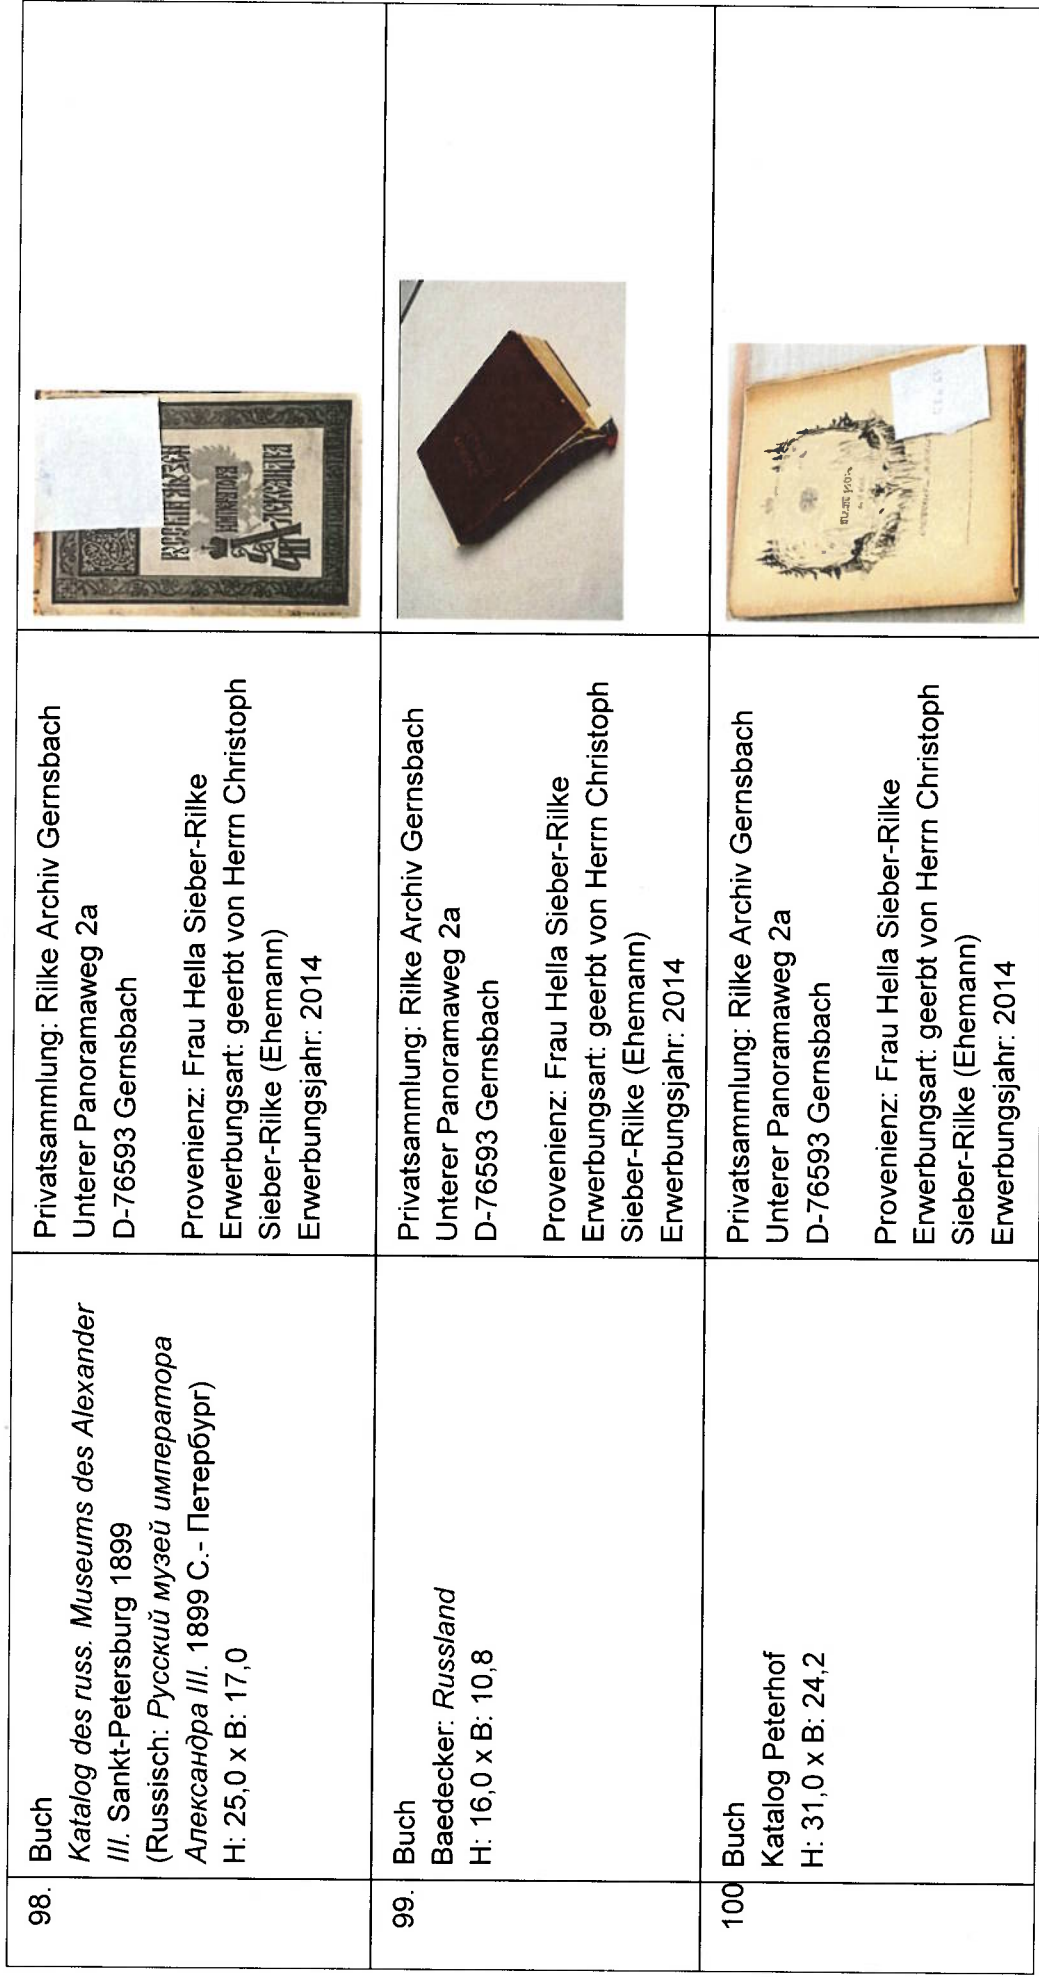 98.
Buch
Katalog des russ. Museums des Alexander
III. Sankt-Petersburg 1899
(Russisch: Русский музей императора
Александра III. 1899 С.- Петербург)
H: 25,0 x B: 17,0
Privatsammlung: Rilke Archiv Gernsbach
Unterer Panoramaweg 2a
D-76593 Gernsbach
Provenienz: Frau Hella Sieber-Rilke
Erwerbungsart: geerbt von Herrn Christoph
Sieber-Rilke (Ehemann)
Erwerbungsjahr: 2014
99.
Buch
Baedecker: Russland
H: 16,0 x B: 10,8
Privatsammlung: Rilke Archiv Gernsbach
Unterer Panoramaweg 2a
D-76593 Gernsbach
Provenienz: Frau Hella Sieber-Rilke
Erwerbungsart: geerbt von Herrn Christoph
Sieber-Rilke (Ehemann)
Erwerbungsjahr: 2014
100
Buch
Katalog Peterhof
H: 31,0 x B: 24,2
Privatsammlung: Rilke Archiv Gernsbach
Unterer Panoramaweg 2a
D-76593 Gernsbach
Provenienz: Frau Hella Sieber-Rilke
Erwerbungsart: geerbt von Herrn Christoph
Sieber-Rilke (Ehemann)
Erwerbungsjahr: 2014